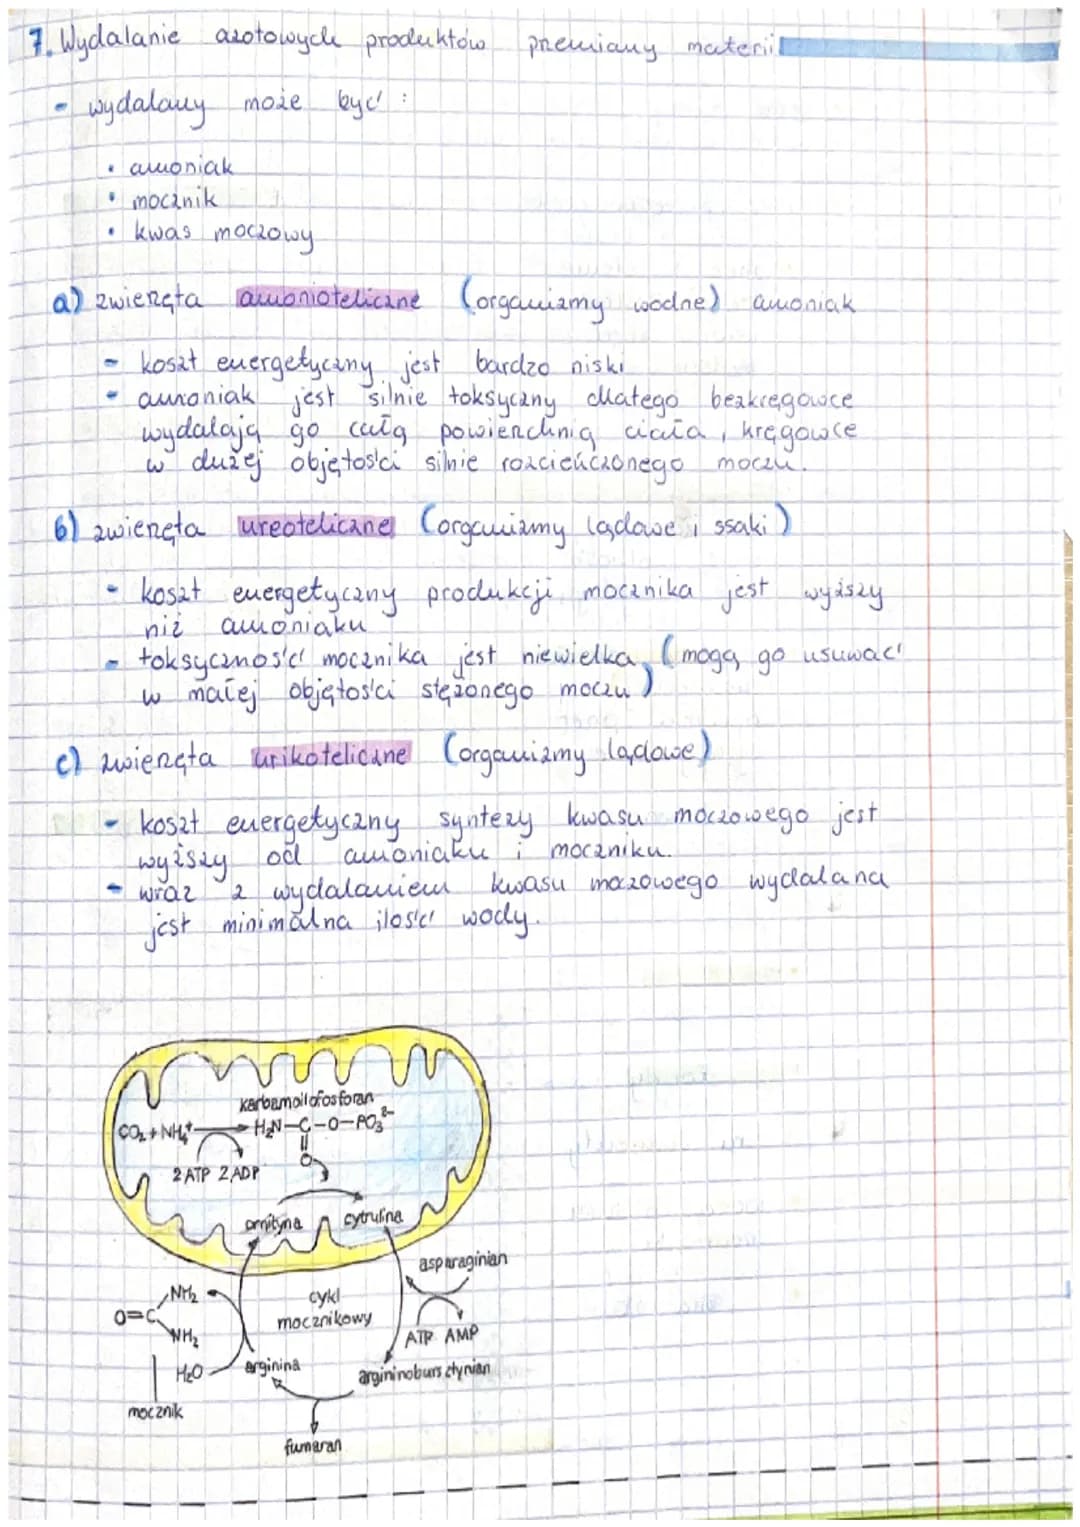 7. Wydalanie azotowych produktów przemiany materii
- wydalany może być :
• amoniak
• mocznik
• kwas moczowy
a) zwierzęta amonioteliczne (organizmy wodne) amoniak
- koszt energetyczny jest bardzo niski
- amoniak jest silnie toksyczny dlatego bezkręgowce
wydalają go całą powierzchnią ciała, kręgowce
w dużej objętości silnie rozcieńczonego moczu.
b) zwierzęta ureoteliczne (organizmy lądowe i ssaki)
- koszt energetyczny produkcji mocznika jest wyższy
niż amoniaku
- toksyczność mocznika jest niewielka (mogą go usuwać
w małej objętości stężonego moczu)
c) zwierzęta urikoteliczne (organizmy lądowe)
- koszt energetyczny syntezy kwasu moczowego jest
wyższy od amoniaku i moczniku.
- wraz z wydalaniem kwasu moczowego wydalana
jest minimalna ilość wody.
karbamoilofosforan
CO₂ + NH₄⁺ H₂N-C-O-PO₃²⁻
O
2 ATP 2 ADP
ornityna cytrulina
asparaginian
NH₂
O=C
NH₂
cykl
mocznikowy
ATP AMP
H₂O arginina argininobursztynian
mocznik
fumaran